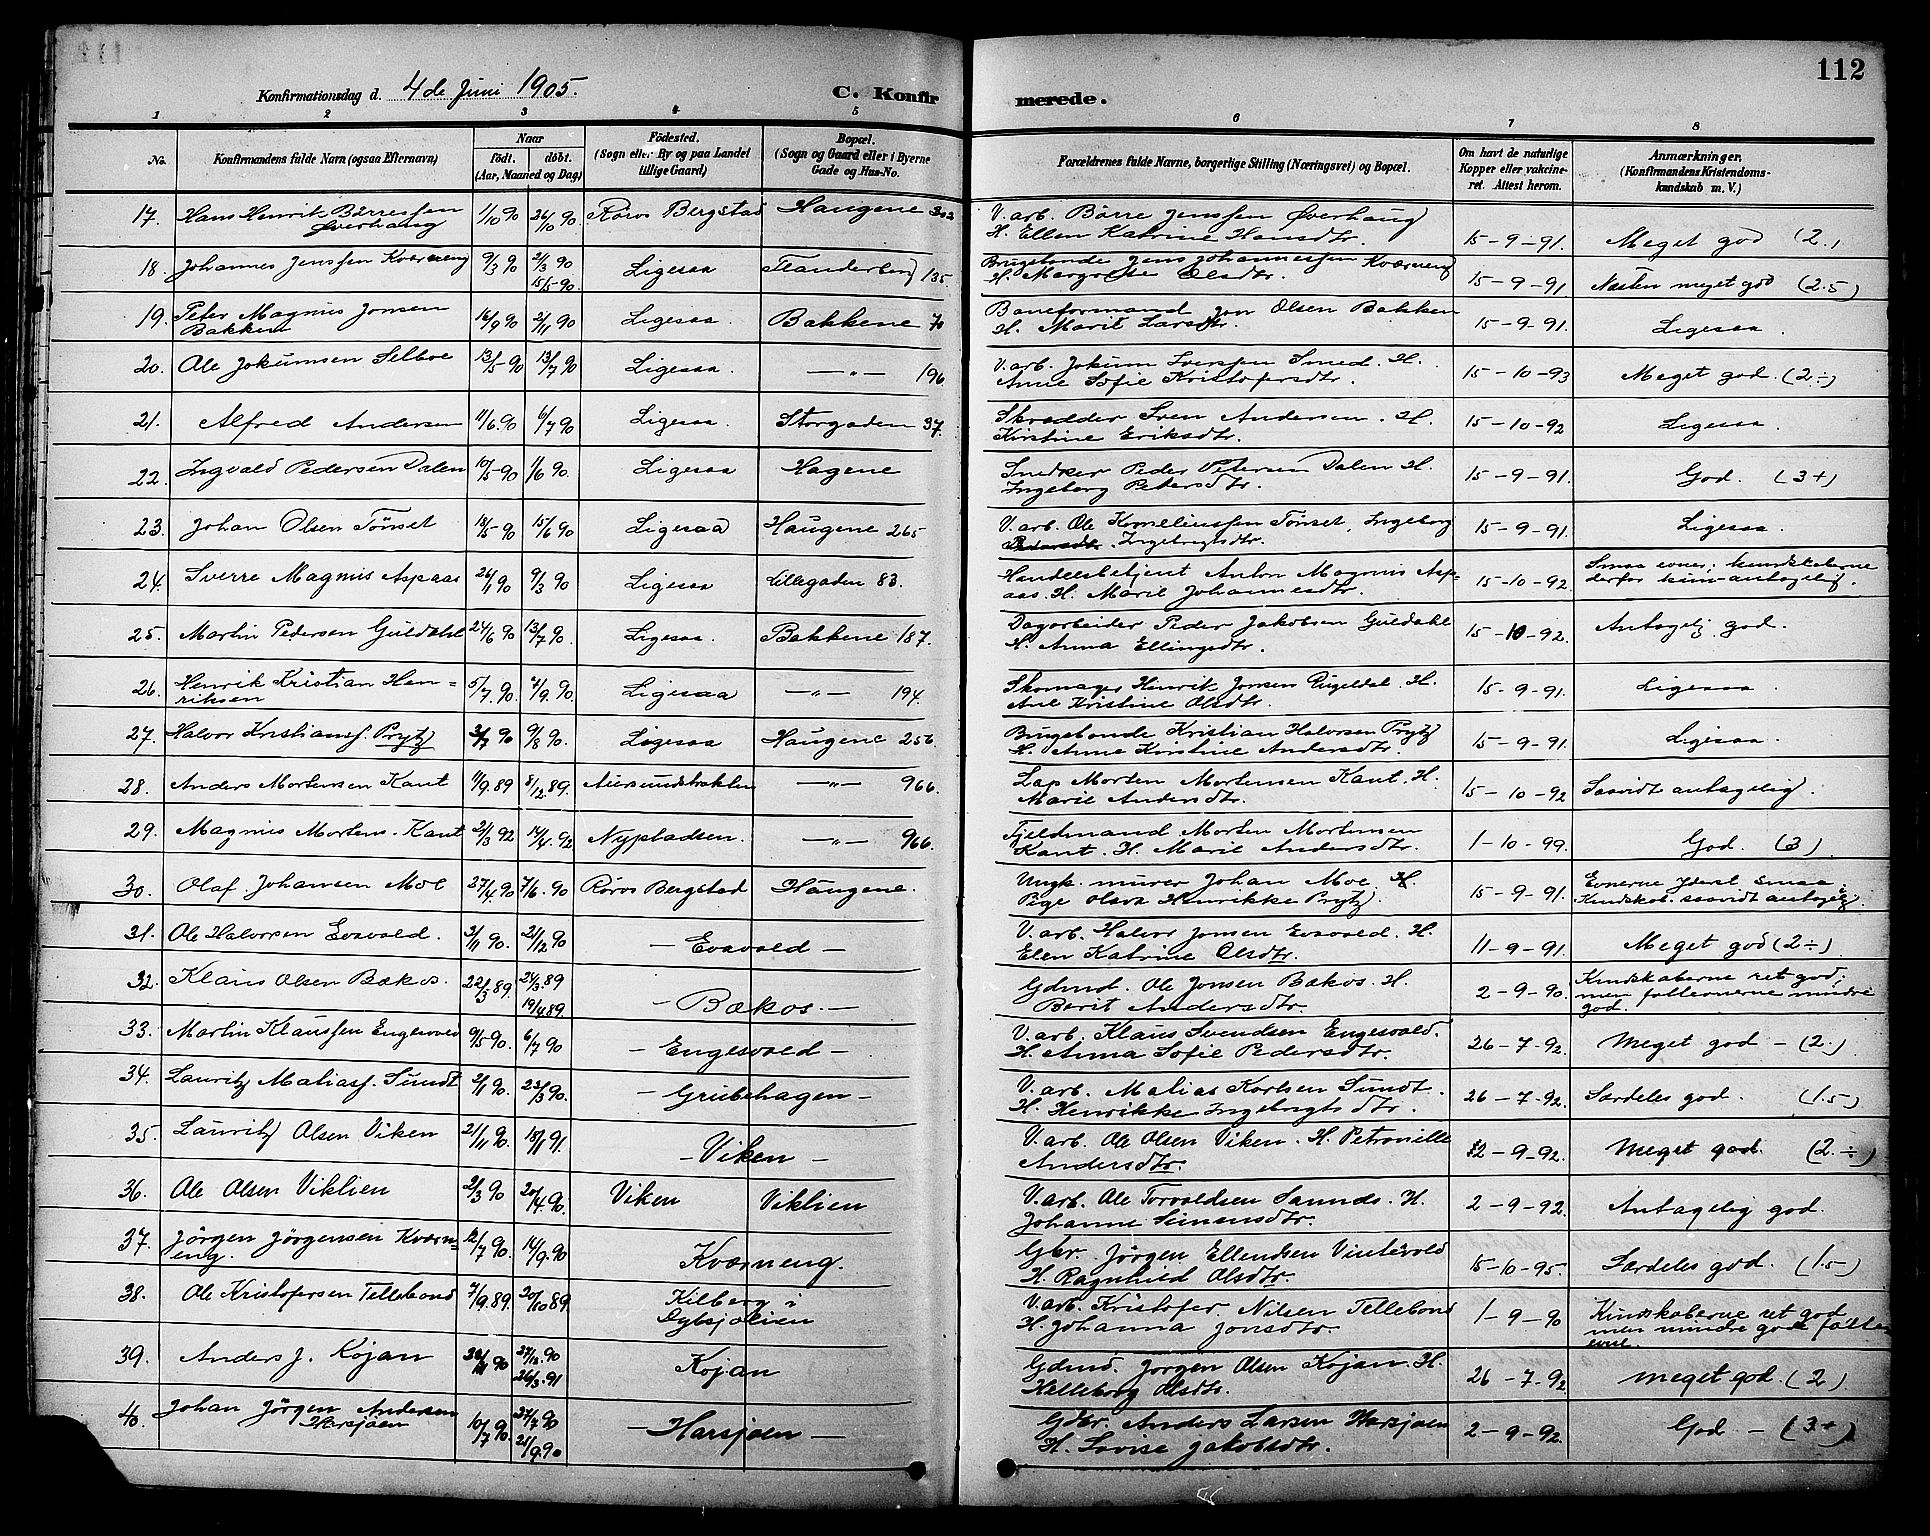 112
Konfirmationsdag d. 4de Juni 1905.
C. Konfirmerede.
1 2 3 4 5 6 7 8
No.
Konfirmandens fulde Navn (ogsaa Efternavn)
Naar
født. døbt.
(Aar, Maaned og Dag)
Fødested.
(Sogn eller By og paa Landet
tillige Gaard)
Bopæl.
(Sogn og Gaard eller i Byerne
Gade og Hus-No.
Forældrenes fulde Navne, borgerlige Stilling (Næringsvei) og Bopæl.
Om havt de naturlige
Kopper eller vakcine-
ret. Attest herom.
Anmærkninger.
(Konfirmandens Kristendoms-
kundskab m. V.)
17. Hans Henrik Börressen Øverhaug 1/10 90 26/10 90 Röros Bergstad Haugene 302 V. arb. Börre Jenssen Øverhaug H. Ellen Katrine Hansdtr. 15-9-91. Meget god (2.)
18. Johannes Jenssen Kværneng 9/3 90 2/3 90 15/5-90. Ligesaa 135 Brugsbonde Jens Johannessen Kværneng H. Margrete Olsdtr. 15-9-91 Næsten meget god (2.5)
19. Peter Magnus Jonsen Bakken 16/9 90 2/11 90 Ligesaa Bakkene 70 Baneformand Jon Olsen Bakken H. Marit Larsdtr. 15-9-91. Ligesaa.
20. Ole Jokumsen Selboe 13/5-90 13/7 90 Ligesaa. —"— 196 V. arb. Jokum Iverssen Smed. H. Anne Sofie Kristofersdtr. 15-10-93 Meget god. (2÷)
21. Alfred Andersen 11/6.90 6/7 90 Ligesaa. Storgaden 37. Skrædder Sven Andersen. H. Kirstine Eriksdtr. 15-10-92 Ligesaa.
22. Ingvald Pedersen Dalen 10/5-90 1/6 90. Ligesaa Hagene Snedker Peder Petersen Dalen H. Ingeborg Petersdtr. 15-9-91. God. (3+)
23. Johan Olsen Tönset 18/5-90 15/6 90 Ligesaa Haugene 265 V. arb. Ole Korneliussen Tønset, Ingeborg Pedersdtr. Ingebrigtsdtr. 15-9-91. Ligesaa.
24. Sverre Magnus Aspaas 26/1 90 9/3 90 Ligesaa Lillegaden 83. Handelsbetjent Anton Magnus Aspaas. H. Marie Johannesdtr. 15-10-92 Smaa evner; kundskaberne derfor kun antagelig.
25. Martin Pedersen Guldahl 24/6 90 13/7 90. Ligesaa. Bakkene 187. Dagarbeider Peder Jakobsen Guldahl H. Anna Ellingsdtr. 15-10-92. Antagelig god.
26. Henrik Kristian Henriksen 5/7.90. 7/9 90. Ligesaa —"— 194. Skomager Henrik Jonsen Rugeldal. H. Ane Kristine Olsdtr. 15-9-91. Ligesaa.
27. Halvor Kristianss. Prytz 3/7 90 9/8 90. Ligesaa Haugene 256. Brugsbonde Kristian Halvorsen Prytz H. Anne Kristine Andersdtr. 15-9-91. Ligesaa.
28. Anders Mortensen Kant 11/9.89 8/12.89. Aursundstrakten —"— 966. Lap Morten Mortensen Kant. H. Marie Andersdtr. 15-10-92 Saavidt antagelig.
29. Magnus Mortens. Kant 21/3 92 14/4.92 Nypladsen. —"— 966. Fjeldmand Morten Mortensen Kant. H. Marie Andersdtr. 1-10-99. God. (3)
30. Olaf Johansen Moe 27/4.90 7/6.90 Röros Bergstad Haugene. Ungk. murer Johan Moe. H. Pige Olava Henrikke Prytz. 15-9-91. Evnerne yderst smaa; Kundskab. saavidt antagelig.
31. Ole Halvorsen Evavold. 3/11 90. 21/12 90 — Evavold — V. arb. Halvor Jonsen Evavold. H. Elen Katrine Olsdtr. 11-9-91. Meget god (2÷)
32. Klaus Olsen Bækos. 22/3 89. 24/3.89 19/4 89 — Bækos. — Gdmd. Ole Jonsen Bækos. H. Berit Andersdtr. 2-9-90. Kundskaberne ret god; men fatteevnerne mindre god.
33. Martin Klaussen Engesvold 9/5 90. 6/7 90 — Engesvold — V. arb. Klaus Svendsen Engesvold. H. Anna Sofie Pedersdtr. 26-7-92. Meget god — (2.)
34. Lauritz Matiass. Sundt 2/1 90. 23/3 90. — Grubehagen — V. arb. Matias Karlsen Sundt. H. Henrikke Ingebrigtsdtr. 26-7-92. Særdeles god. (1.5)
35. Lauritz Olsen Viken 21/11 90. 18/1 91. — Viken — V. arb. Ole Olsen Viken. H. Petronille Andersdtr. 2-9-92. Meget god. (2.÷)
36. Ole Olsen Viklien 2/3 90 20/4.90. Viken Viklien V. arb. Ole Torvaldsen Saunds. H. Johanne Simensdtr. 2-9-92. Antagelig god.
37. Jörgen Jörgensen Kværneng. 12/7 90. 14/9.90 Kværneng. Gbr. Jörgen Ellendsen Vintervold H. Ragnhild Olsdtr. 15-10-95. Særdeles god. (1.5)
38. Ole Kristofersen Tellebond 7/9.89. 20/10 89. Kilberg i V. arb. Kristofer Nilsen Tellebond H. Johanna Jonsdtr. 1-9-90 Kundskaberne ret god men mindre god fatteevne.
39. Anders J. Kojan 90 27/12.90 26/3.91 Kojan Gdmd. Jörgen Olsen Kojan. H. Kelleborg Olsdtr. 26-7-92 Meget god. (2)
40. Johan Jörgen Andersen Harsjøen 10/7 90. 27/7 90 21/9.90 — Harsjøen — Gbr. Anders Larsen Harsjøen H. Lovise Jakobsdtr. 2-9-92. God. — (3+)